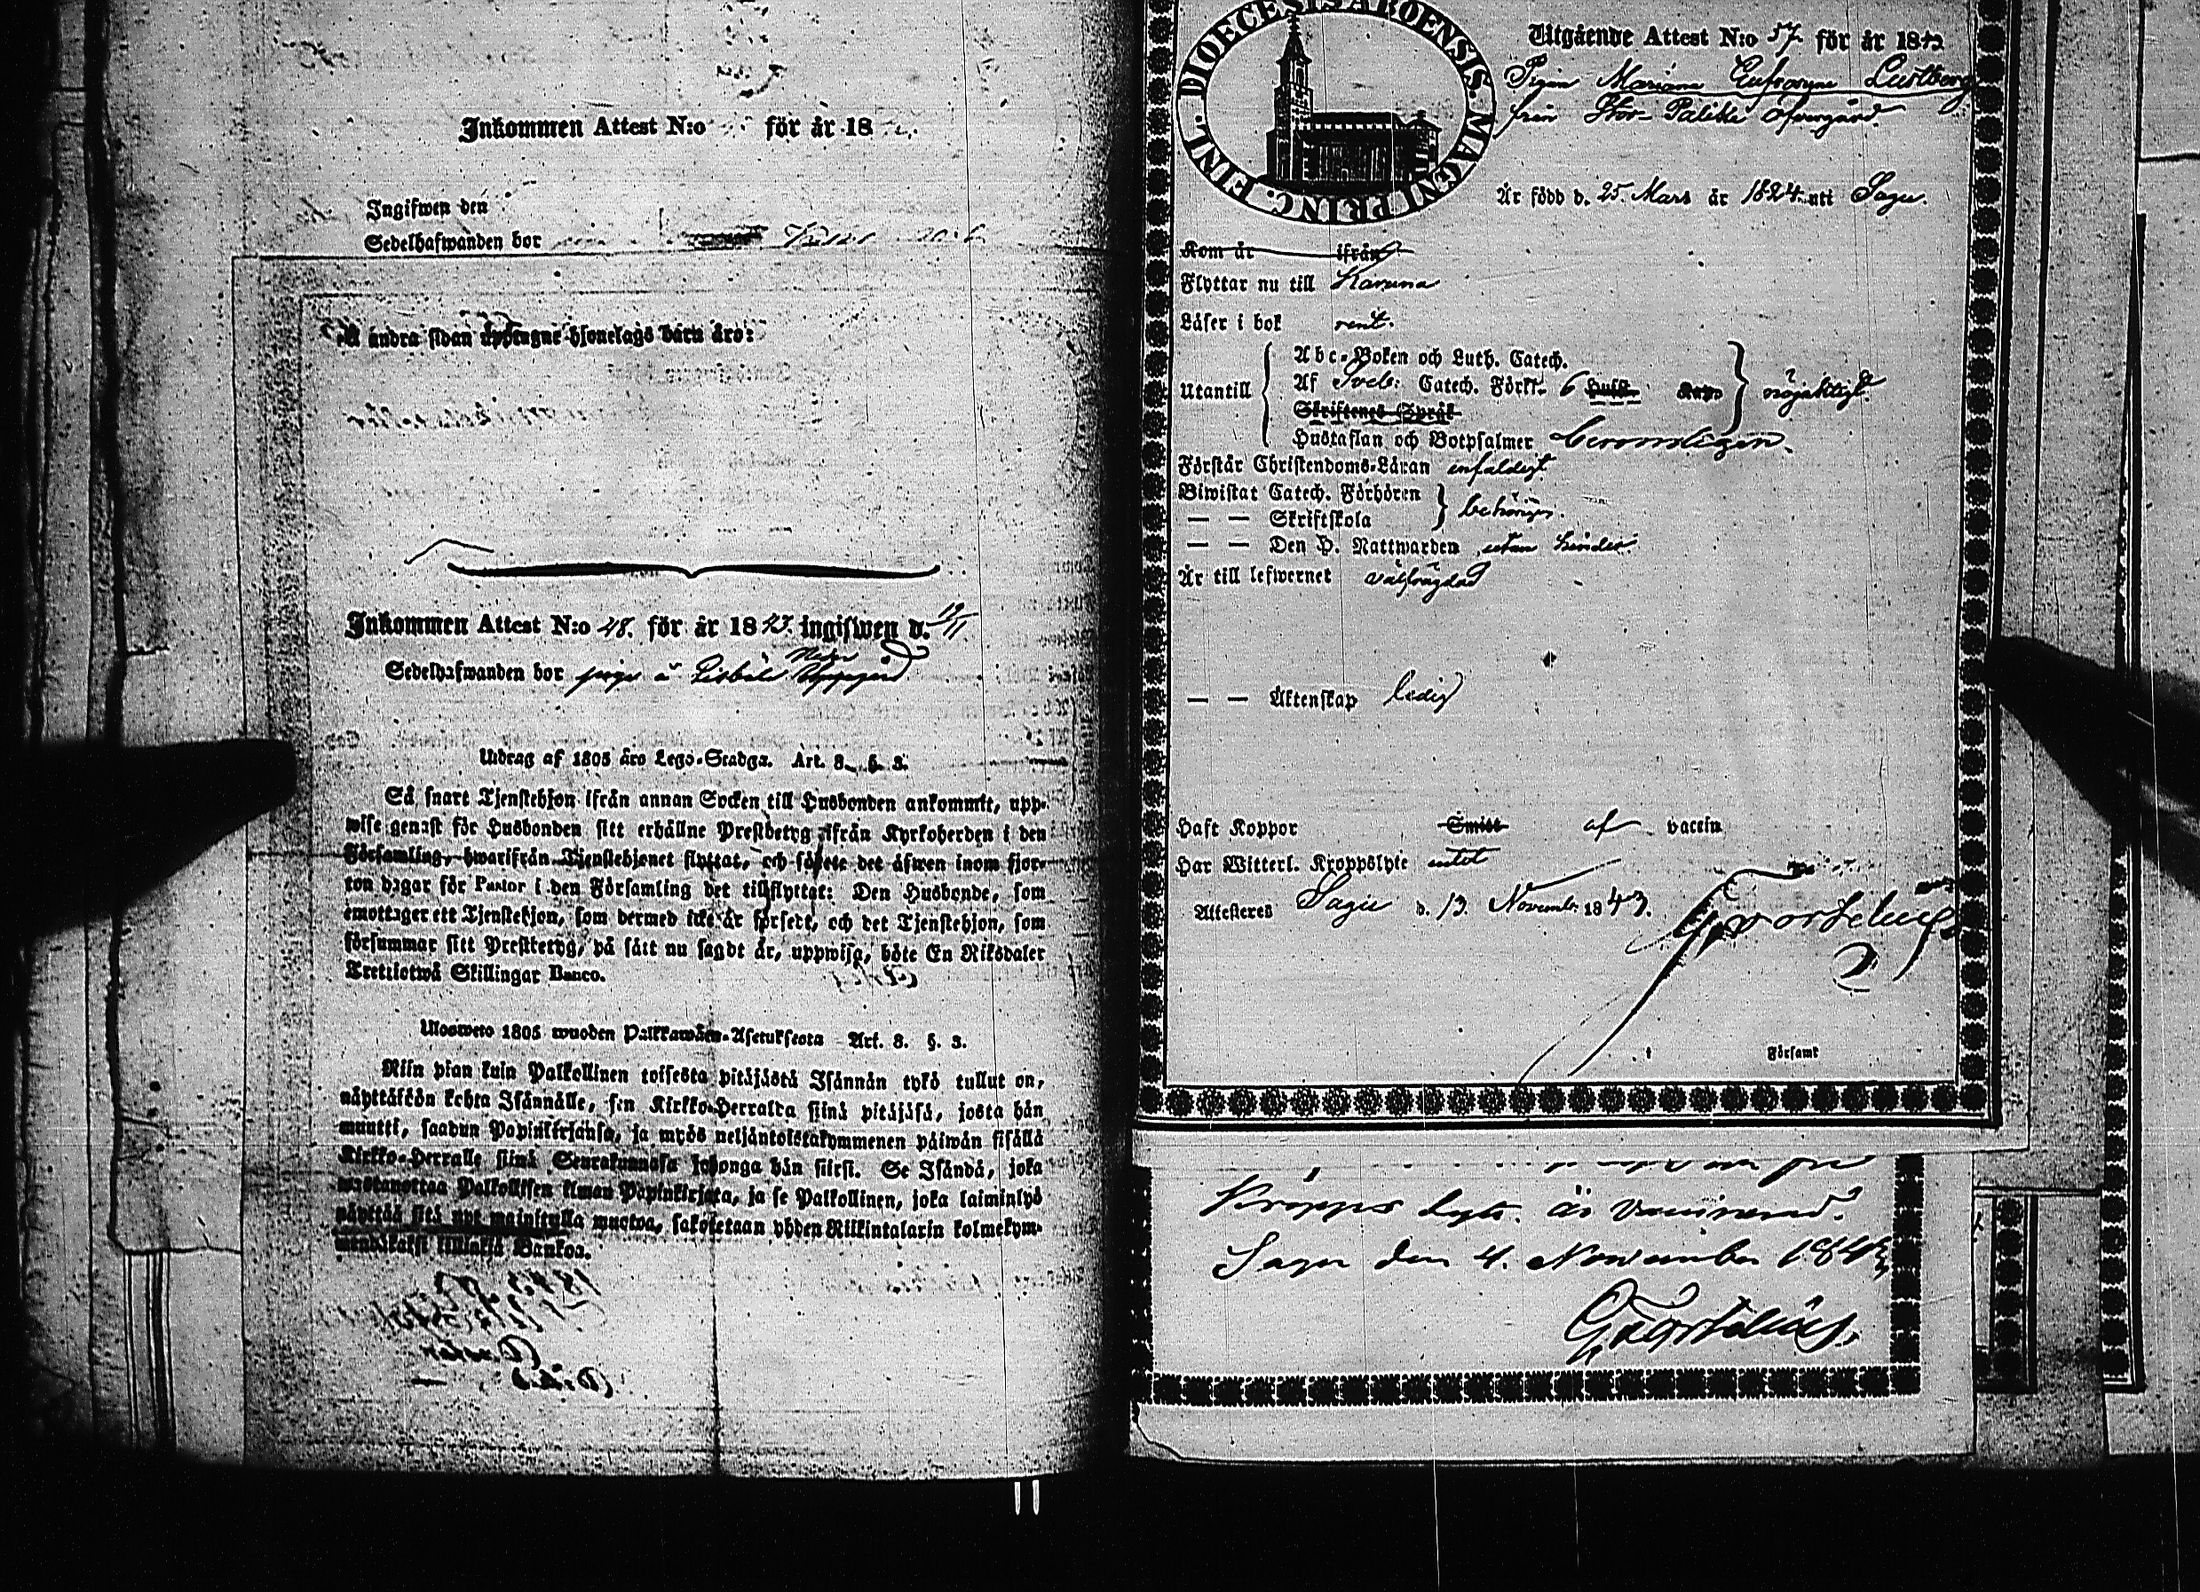 Inkommen Attest N:o för år 18
Ingifwen den
Sedelhafwanden bor
å andra sidan hjonelags barn äro:
Inkommen Attest N:o 48. för år 1843. ingifwen d. 19/11.
Sedelhafwanden bor piga å Nedergård
Utdrag af 1805 års Lego-Stadga. Art. 8. §. 3.
Så snart Tjenstehjon ifrån annan Socken till Husbonden ankommit, upp-
wise genast för Husbonden sitt erhållne Prestbetyg ifrån Kyrkoherden i den
Församling, hwarifrån Tjenstehjonet flyttat, och förete det äfwen inom fjor-
ton dagar för Pastor i den Församling det tillflyttat: Den Husbonde, som
emottager ett Tjenstehjon, som dermed icke är försett, och det Tjenstehjon, som
försummar sitt Prestbetyg, på sätt nu sagdt är, uppwisa, böte En Riksdaler
Trettiotwå Skillingar Banco.
Ulosweto 1805 wuoden Palkkawäen-Asetuksesta Art. 8. §. 3.
Niin pian kuin Palkollinen toisesta pitäjästä Isännän tykö tullut on,
näyttäkään kohta Isännälle, sen Kirkko-Herralta siinä pitäjäsä, josta hän
muutti, saadun Papinkirjansa, ja myös neljäntoistakymmenen päiwän sisällä
Kirkko-Herralle siinä Seurakunnasa johonga hän siirsi. Se Isändä, joka
wastanottaa Palkollisen ilman Papinkirjata, ja se Palkollinen, joka laiminlyö
näyttää sitä nyt mainitulla muotoa, sakotetaan yhden Riikintalarin kolmekym-
mendäkaksi killingiä Bankoa.
DIOECESIS ABOENSIS. MAGNI PRINC. FINL.
Utgående Attest N:o 57 för år 1843
Pigan Mariana Eufrosyne Lustberg
från Stor-Palikis Ofvangård.
Är född d. 25. Mars år 1824. uti Sagu.
Kom år ifrån
Flyttar nu till Karuna
Läser i bok rent.
Utantill
Abc-Boken och Luth. Catech.
Af Sveb: Catech. Förkl. 6 Hufst. nöjaktigt.
Skriftenes Språk
Hustaflan och Botpsalmer berömligen.
Förstår Christendoms-Läran enfaldigt
Biwistat Catech. Förhören
— — Skriftskola behörigen
— — Den H. Nattwarden utan hinder.
Är till lefwernet välfrägdad
— — Äktenskap ledig
Haft Koppor Smitt af vaccin
Har Witterl. Kroppslyte intet
Attesteras Sagu d. 13. Novemb. 1843.
i Församl
Kropps lyte. är vaccinerad.
Sagu den 4. November 1843